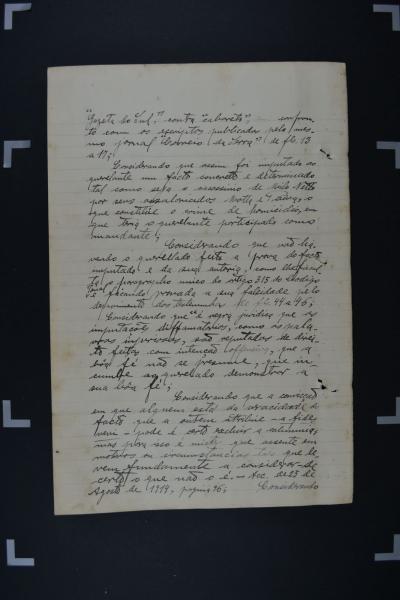 "Gazeta do Sul", contra "cabarets", em fron-
te com os escriptos publicados pelo mes-
mo jornal "Correio da Serra" de fls. 13
a 17;
Considerando que assim foi imputado ao
querelante um facto concreto e determinado
tal como seja o assassinio de
por seus assalariados Motta e
que constitue o crime de homicidio, em
que teria o querelante participado como
mandante;
Considerando que não ha-
vendo o querelado feito a prova do facto
imputado e da sua autoria, como lhe
o paragrapho unico do artigo 315 do Codigo
ficando provada a sua falsidade pelo
depoimento das testemunhas de fls. 44 a 46;
Considerando que "é regra juridica que as
imputações diffamatorias, como as pala-
vras injuriosas, são reputadas de direi-
to feitas com intenção offensiva, que a
bôa fé não se presume, que in-
cumbe ao querelado demonstrar a
sua bôa fé";
Considerando que a convicção
em que alguem está da veracidade do
facto que a outrem attribue na
vem pode é certo excluir a calumnia,
mas para isso é mister que assente em
motivos ou circumstancias taes que le-
vem fundamente a considerar de
certo o que não o é. — Acc. de 23 de
Agosto de 1919, pagina 96;
Considerando